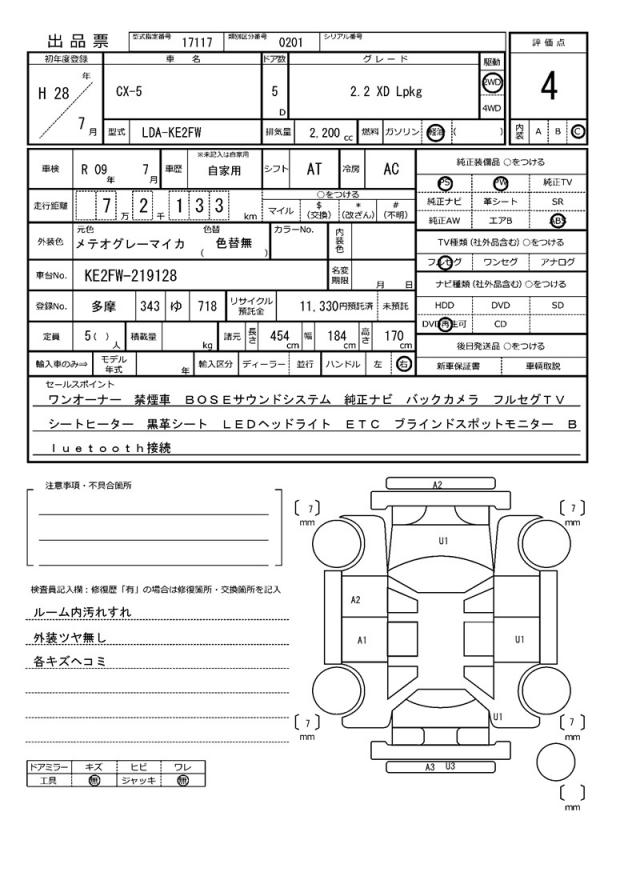 出品票 型式指定番号 17117 類別区分番号 0201 シリアル番号
評価点
4
内装 A B C
初年度登録 車名 ドア数 グレード 駆動
H 28 年 7 月 CX-5 5 D 2.2 XD Lpkg 2WD 4WD
型式 LDA-KE2FW 排気量 2,200 cc 燃料 ガソリン 軽油 ( )
車検 R 09 年 7 月 車歴 ※未記入は自家用 自家用 シフト AT 冷房 AC
走行距離 7 万 2 千 1 3 3 km ○をつける マイル $ (交換) * (改ざん) # (不明)
外装色 元色 メテオグレーマイカ 色替 ( 色替無 ) カラーNo. 内装色
車台No. KE2FW-219128 名変期限 月 日
登録No. 多摩 343 ゆ 718 リサイクル預託金 11,330円預託済 未預託
定員 5( ) 人 積載量 kg 諸元 長さ 454 cm 幅 184 cm 高さ 170 cm
輸入車のみ⇒ モデル年式 年 輸入区分 ディーラー 並行 ハンドル 左 右
純正装備品 ○をつける
PS PW 純正TV
純正ナビ 革シート SR
純正AW エアB ABS
TV種類(社外品含む)○をつける
フルセグ ワンセグ アナログ
ナビ種類(社外品含む)○をつける
HDD DVD SD
DVD再生可 CD
後日発送品 ○をつける
新車保証書 車輌取説
セールスポイント
ワンオーナー 禁煙車 BOSEサウンドシステム 純正ナビ バックカメラ フルセグTV
シートヒーター 黒革シート LEDヘッドライト ETC ブラインドスポットモニター B
luetooth接続
注意事項・不具合箇所
検査員記入欄:修復歴「有」の場合は修復箇所・交換箇所を記入
ルーム内汚れすれ
外装ツヤ無し
各キズヘコミ
ドアミラー キズ ヒビ ワレ
工具 無 ジャッキ 無
A2
[ 7 ] mm
[ 7 ] mm
U1
A2
A1
U1
U1
[ 7 ] mm
[ 7 ] mm
A3 U3
[ ] mm